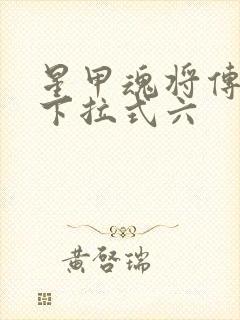 星甲魂将傳
下拉式六
黄啓瑞